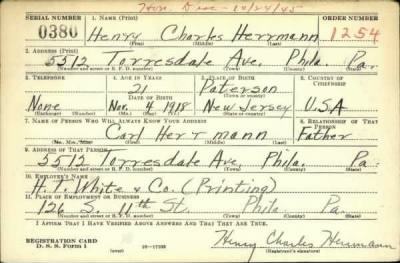 Hon. Disc - 10/24/45
SERIAL NUMBER 1. NAME (Print) ORDER NUMBER
0380 Henry Charles Herrmann 1254
(First) (Middle) (Last)
2. ADDRESS (Print)
5512 Torresdale Ave. Phila. Pa.
(Number and street or R. F. D. number) (Town) (County) (State)
3. TELEPHONE 4. AGE IN YEARS 5. PLACE OF BIRTH 6. COUNTRY OF CITIZENSHIP
21 Paterson
DATE OF BIRTH (Town or county)
None Nov. 4 1918 New Jersey U.S.A
(Exchange) (Number) (Mo.) (Day) (Yr.) (State or country)
7. NAME OF PERSON WHO WILL ALWAYS KNOW YOUR ADDRESS 8. RELATIONSHIP OF THAT PERSON
Carl Herrmann Father
(Mr., Mrs., Miss) (First) (Middle) (Last)
9. ADDRESS OF THAT PERSON
5512 Torresdale Ave, Phila. Pa.
(Number and street or R. F. D. number) (Town) (County) (State)
10. EMPLOYER'S NAME
H. T. White & Co. (Printing)
11. PLACE OF EMPLOYMENT OR BUSINESS
126 S. 11th St. Phila. Pa
(Number and street or R. F. D. number) (Town) (County) (State)
I AFFIRM THAT I HAVE VERIFIED ABOVE ANSWERS AND THAT THEY ARE TRUE.
REGISTRATION CARD
D. S. S. Form 1 (over) 16-17105 Henry Charles Herrmann
(Registrant's signature)